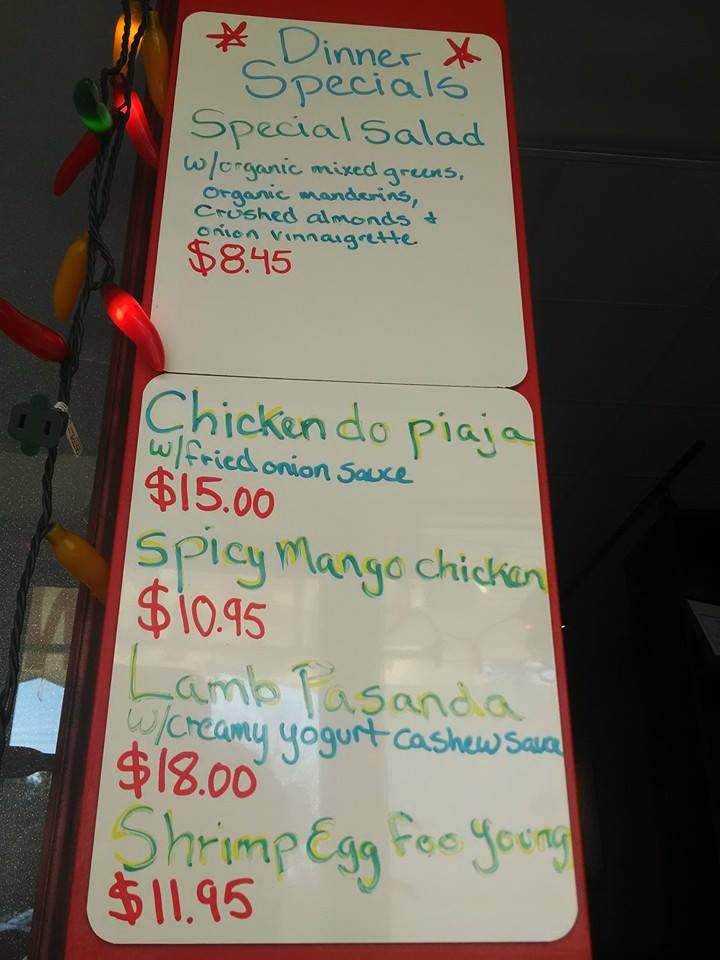 Dinner
Specials
Special Salad
w/organic mixed greens,
organic manderins,
Crushed almonds &
onion vinnaigrette
$8.45
Chicken do piaja
w/fried onion sauce
$15.00
Spicy Mango chicken
$10.95
Lamb Pasanda
w/creamy yogurt cashew sauce
$18.00
Shrimp Egg Foo Young
$11.95